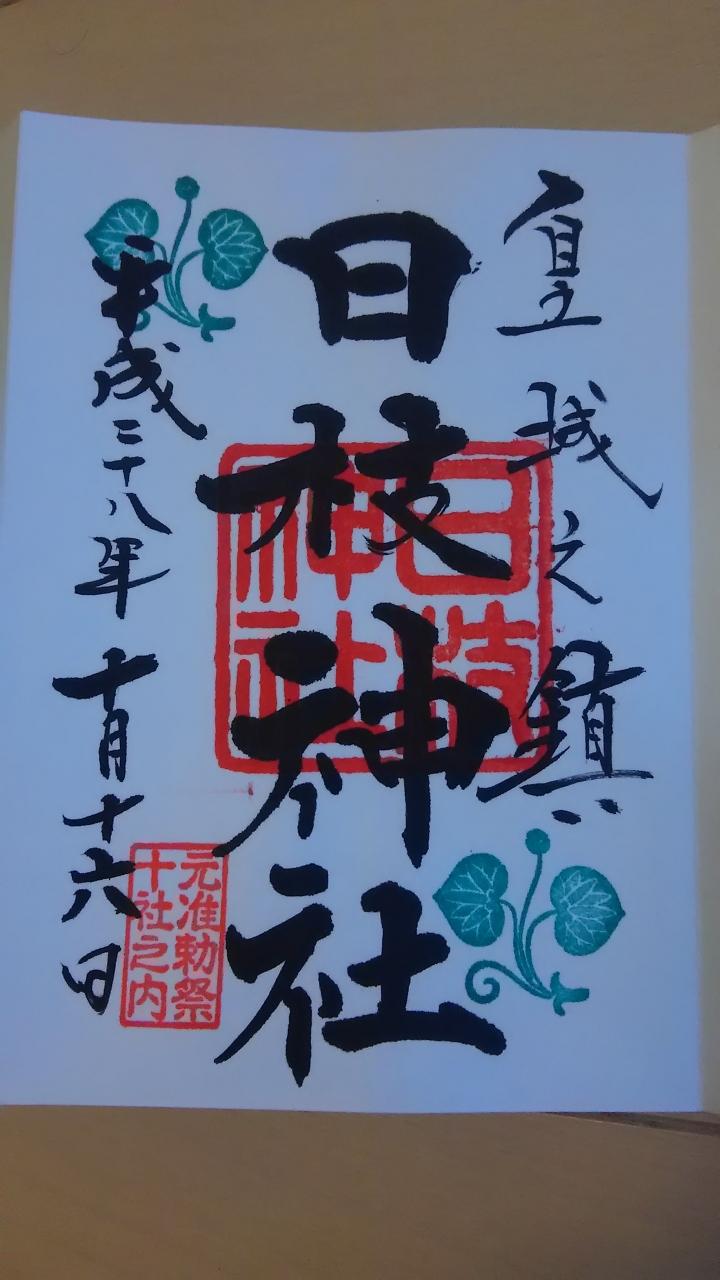 皇城之鎮
日枝神社
日枝
神社
平成二十八年十月十六日
元准勅祭
十社之内